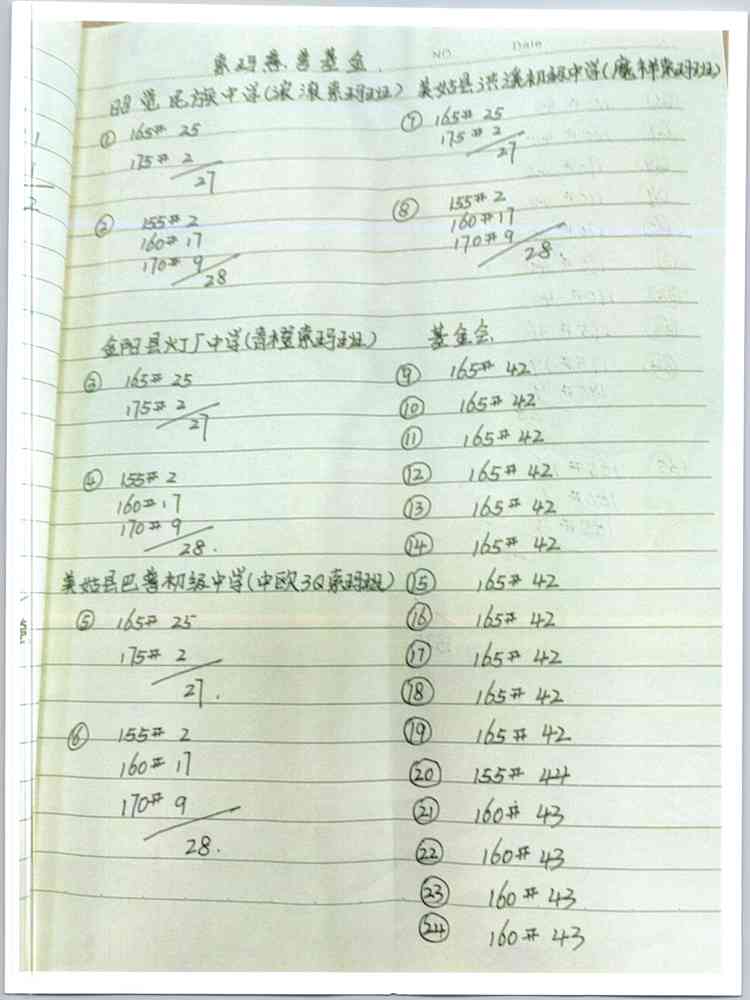 索玛慈善基金
NO
Date
昭觉民族中学(滚滚索玛班)
① 165# 25
175# 2
27
② 155# 2
160# 17
170# 9
28
金阳县灯厂中学(青橙索玛班)
③ 165# 25
175# 2
27
④ 155# 2
160# 17
170# 9
28.
美姑县巴普初级中学(中欧3Q索玛班)
⑤ 165# 25
175# 2
27.
⑥ 155# 2
160# 17
170# 9
28.
美姑县洪溪初级中学(魔样索玛班)
⑦ 165# 25
175# 2
27
⑧ 155# 2
160# 17
170# 9
28.
基金会
⑨ 165# 42
⑩ 165# 42
⑪ 165# 42
⑫ 165# 42
⑬ 165# 42
⑭ 165# 42
⑮ 165# 42
⑯ 165# 42
⑰ 165# 42
⑱ 165# 42
⑲ 165# 42
⑳ 155# 44
㉑ 160# 43
㉒ 160# 43
㉓ 160# 43
㉔ 160# 43